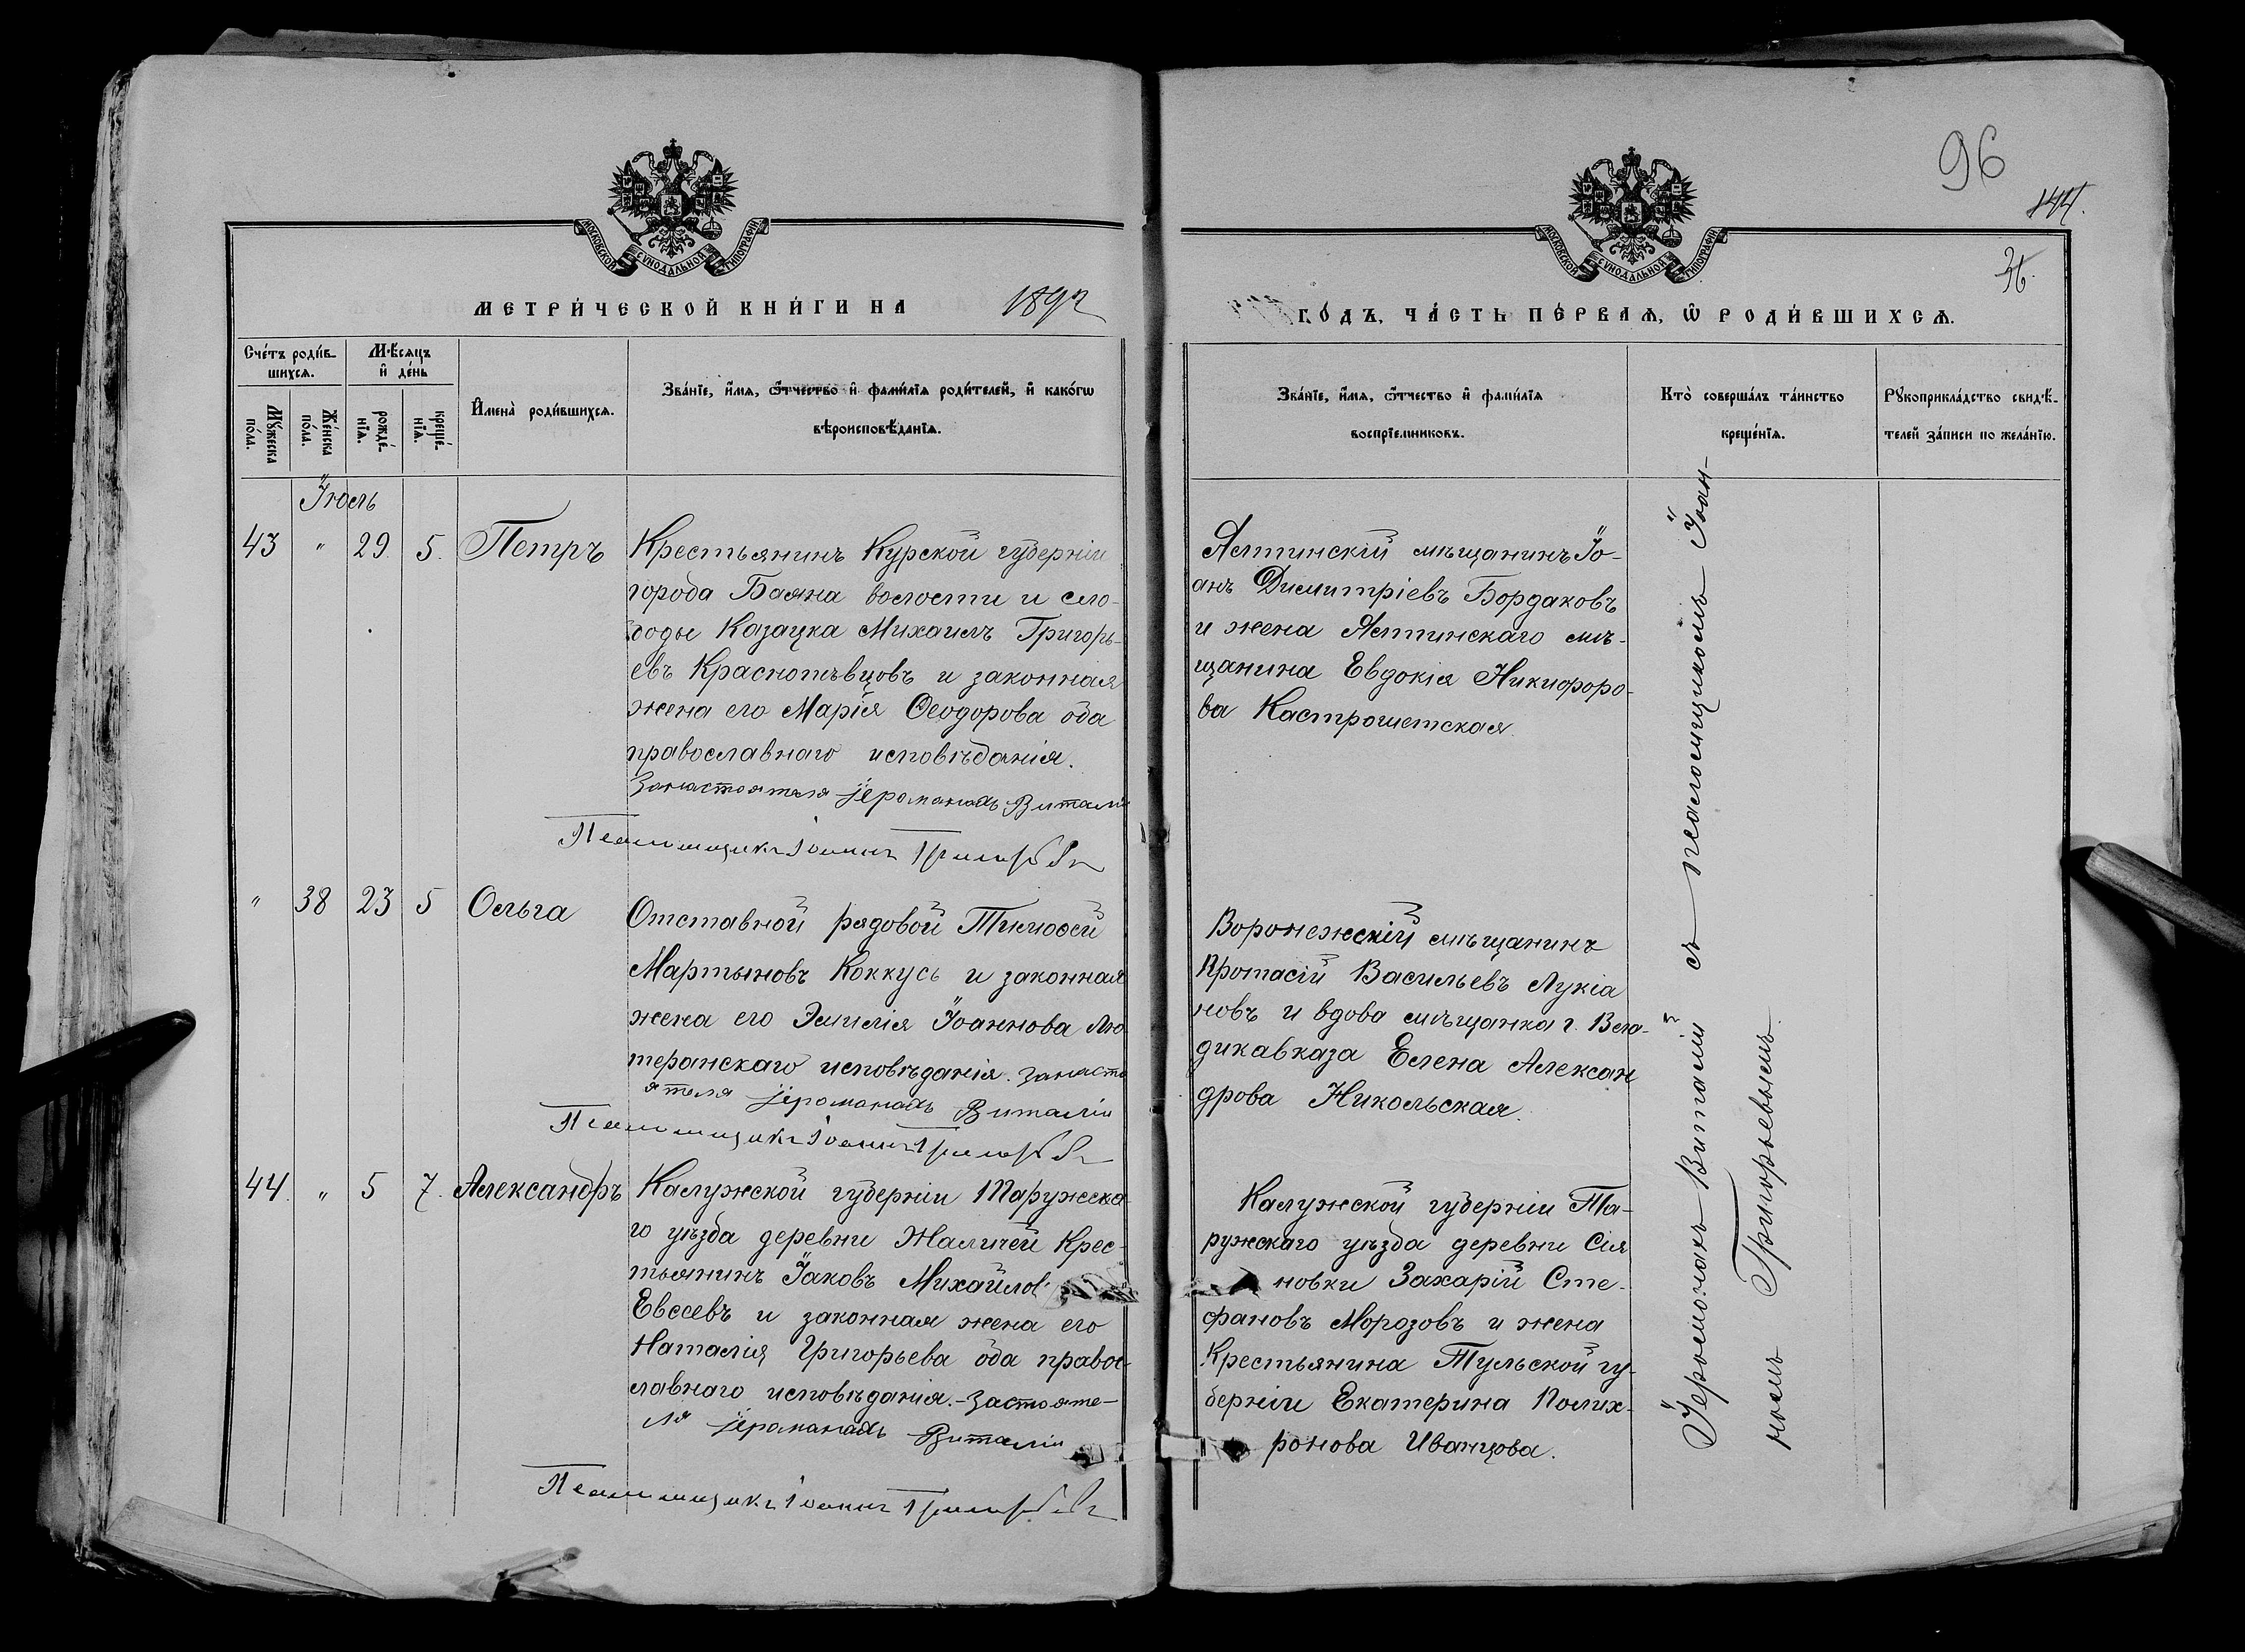 96
144.
36.
МОСКОВСКОЙ СѴНОДАЛЬНОЙ ТИПОГРАФІИ
МОСКОВСКОЙ СѴНОДАЛЬНОЙ ТИПОГРАФІИ
МЕТРИ́ЧЕСКОЙ КНИ́ГИ НА 1892
ГО́ДЪ, ЧА́СТЬ ПЕ́РВАЯ, Ѡ РОДИ́ВШИХСЯ.
Сче́тъ роди́в-
шихся.
Мѣ́сяцъ
и де́нь
Му́жеска
по́ла.
Же́нска
по́ла.
рожде́-
нїя.
креще́-
нїя.
Имена̀ роди́вшихся.
Зва́нїе, и́мя, ѻ҆́тчество и фами́лїя роди́телей, и како́гѡ
вѣроисповѣ́данїя.
Зва́нїе, и́мя, ѻ҆́тчество и фами́лїя
воспрїе́мниковъ.
Кто̀ соверша́лъ та́инство
креще́нїя.
Рукоприкла́дство свидѣ́-
телей за́писи по жела́нїю.
Іюль
43 " 29. 5. Петръ
Крестьянинъ Курской губерніи
города Баяна волости и сло-
боды Казацка Михаилъ Григорь-
евъ Краснопѣвцовъ и законная
жена его Марія Ѳеодорова оба
православнаго исповѣданія.
За настоятеля іеромонахъ Виталій
Псаломщикъ Іоаннъ Григорьевъ
Ялтинскій мѣщанинъ Іо-
анъ Димитріевъ Бордаковъ
и жена Ялтинскаго мѣ-
щанина Евдокія Никифоро-
ва Кастрошетская.
" 38 23 5 Ольга
Отставной рядовой Тимоѳей
Мартыновъ Коккусь и законная
жена его Эмилія Іоаннова лю
теранскаго исповѣданія. За насто
ятеля іеромонахъ Виталій
Псаломщикъ Іоаннъ Григорьевъ
Воронежскій мѣщанинъ
Протасій Васильевъ Лукіа
новъ и вдова мѣщанка г. Вла-
дикавказа Елена Алексан
дрова Никольская.
44. " 5 7. Александръ
Калужской губерніи Таружска
го уѣзда деревни Жаличей Крес-
тьянинъ Іаковъ Михайлов
Евсеевъ и законная жена его
Наталія Григорьева оба правос-
лавнаго исповѣданія. - Застояте-
ля іеромонахъ Виталій
Псаломщикъ Іоаннъ Григорьевъ
Калужской губерніи Та-
ружскаго уѣзда деревни Сія
новки Захарій Сте-
фановъ Морозовъ и жена
Крестьянина Тульской гу-
берніи Екатерина Полих-
ронова Иванцова.
Іеромонахъ Виталій съ псаломщикомъ Іоан-
номъ Григорьевымъ